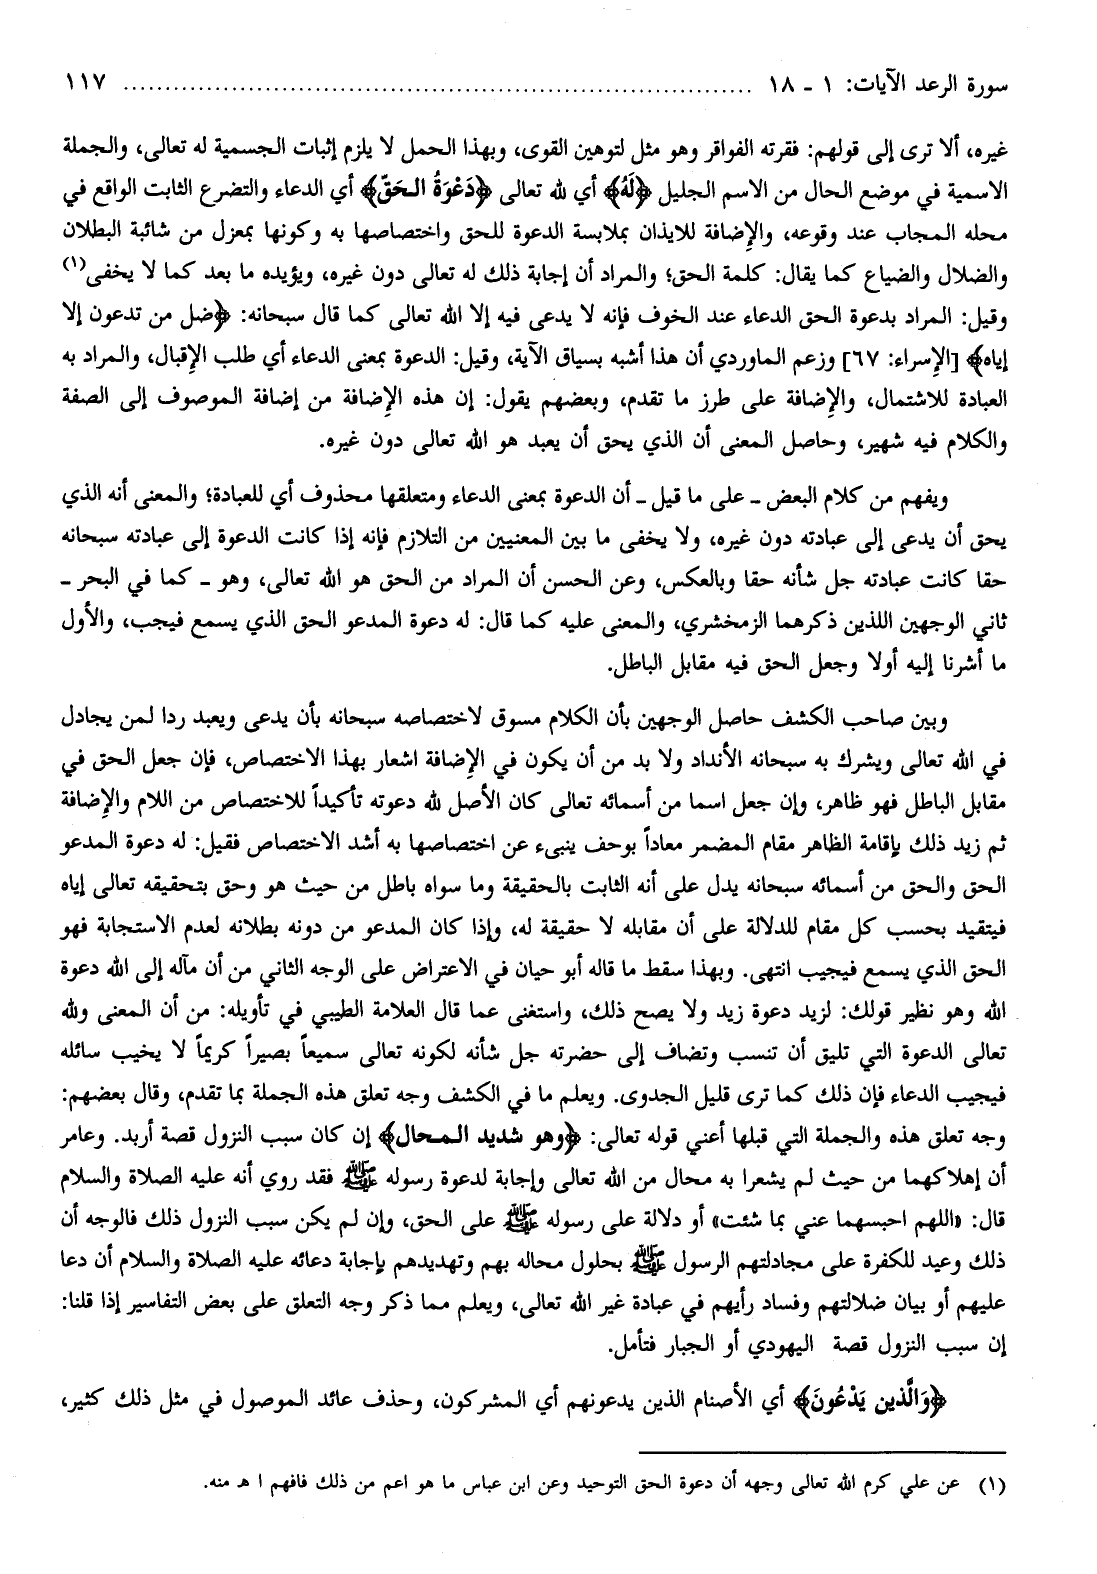 سورة الرعد الآيات: ١ ـ ١٨ ........................................................ ١١٧
غيره، ألا ترى إلى قولهم: فقرته الفواقر وهو مثل لتوهين القوى، وبهذا الحمل لا يلزم إثبات الجسمية له تعالى، والجملة
الاسمية في موضع الحال من الاسم الجليل ﴿لَهُ﴾ أي لله تعالى ﴿دَعْوَةُ الحَقّ﴾ أي الدعاء والتضرع الثابت الواقع في
محله المجاب عند وقوعه، والإضافة للايذان بملابسة الدعوة للحق واختصاصها به وكونها بمعزل من شائبة البطلان
والضلال والضياع كما يقال: كلمة الحق؛ والمراد أن إجابة ذلك له تعالى دون غيره، ويؤيده ما بعد كما لا يخفى(١)
وقيل: المراد بدعوة الحق الدعاء عند الخوف فإنه لا يدعى فيه إلا الله تعالى كما قال سبحانه: ﴿ضل من تدعون إلا
إياه﴾ [الإسراء: ٦٧] وزعم الماوردي أن هذا أشبه بسياق الآية، وقيل: الدعوة بمعنى الدعاء أي طلب الإقبال، والمراد به
العبادة للاشتمال، والإضافة على طرز ما تقدم، وبعضهم يقول: إن هذه الإضافة من إضافة الموصوف إلى الصفة
والكلام فيه شهير، وحاصل المعنى أن الذي يحق أن يعبد هو الله تعالى دون غيره.
ويفهم من كلام البعض ـ على ما قيل ـ أن الدعوة بمعنى الدعاء ومتعلقها محذوف أي للعبادة؛ والمعنى أنه الذي
يحق أن يدعى إلى عبادته دون غيره، ولا يخفى ما بين المعنيين من التلازم فإنه إذا كانت الدعوة إلى عبادته سبحانه
حقا كانت عبادته جل شأنه حقا وبالعكس، وعن الحسن أن المراد من الحق هو الله تعالى، وهو ـ كما في البحر ـ
ثاني الوجهين اللذين ذكرهما الزمخشري، والمعنى عليه كما قال: له دعوة المدعو الحق الذي يسمع فيجب، والأول
ما أشرنا إليه أولا وجعل الحق فيه مقابل الباطل.
وبين صاحب الكشف حاصل الوجهين بأن الكلام مسوق لاختصاصه سبحانه بأن يدعى ويعبد ردا لمن يجادل
في الله تعالى ويشرك به سبحانه الأنداد ولا بد من أن يكون في الإضافة اشعار بهذا الاختصاص، فإن جعل الحق في
مقابل الباطل فهو ظاهر، وإن جعل اسما من أسمائه تعالى كان الأصل لله دعوته تأكيداً للاختصاص من اللام والإضافة
ثم زيد ذلك بإقامة الظاهر مقام المضمر معاداً بوحف ينبىء عن اختصاصها به أشد الاختصاص فقيل: له دعوة المدعو
الحق والحق من أسمائه سبحانه يدل على أنه الثابت بالحقيقة وما سواه باطل من حيث هو وحق بتحقيقه تعالى إياه
فيتقيد بحسب كل مقام للدلالة على أن مقابله لا حقيقة له، وإذا كان المدعو من دونه بطلانه لعدم الاستجابة فهو
الحق الذي يسمع فيجيب انتهى. وبهذا سقط ما قاله أبو حيان في الاعتراض على الوجه الثاني من أن مآله إلى الله دعوة
الله وهو نظير قولك: لزيد دعوة زيد ولا يصح ذلك، واستغنى عما قال العلامة الطيبي في تأويله: من أن المعنى ولله
تعالى الدعوة التي تليق أن تنسب وتضاف إلى حضرته جل شأنه لكونه تعالى سميعاً بصيراً كريماً لا يخيب سائله
فيجيب الدعاء فإن ذلك كما ترى قليل الجدوى. ويعلم ما في الكشف وجه تعلق هذه الجملة بما تقدم، وقال بعضهم:
وجه تعلق هذه والجملة التي قبلها أعني قوله تعالى: ﴿وهو شديد المحال﴾ إن كان سبب النزول قصة أربد. وعامر
أن إهلاكهما من حيث لم يشعرا به محال من الله تعالى وإجابة لدعوة رسوله ﷺ فقد روي أنه عليه الصلاة والسلام
قال: «اللهم احبسهما عني بما شئت» أو دلالة على رسوله ﷺ على الحق، وإن لم يكن سبب النزول ذلك فالوجه أن
ذلك وعيد للكفرة على مجادلتهم الرسول ﷺ بحلول محاله بهم وتهديدهم بإجابة دعائه عليه الصلاة والسلام أن دعا
عليهم أو بيان ضلالتهم وفساد رأيهم في عبادة غير الله تعالى، ويعلم مما ذكر وجه التعلق على بعض التفاسير إذا قلنا:
إن سبب النزول قصة اليهودي أو الجبار فتأمل.
﴿وَالَّذين يَدْعُونَ﴾ أي الأصنام الذين يدعونهم أي المشركون، وحذف عائد الموصول في مثل ذلك كثير،
(١) عن علي كرم الله تعالى وجهه أن دعوة الحق التوحيد وعن ابن عباس ما هو اعم من ذلك فافهم ا هـ منه.